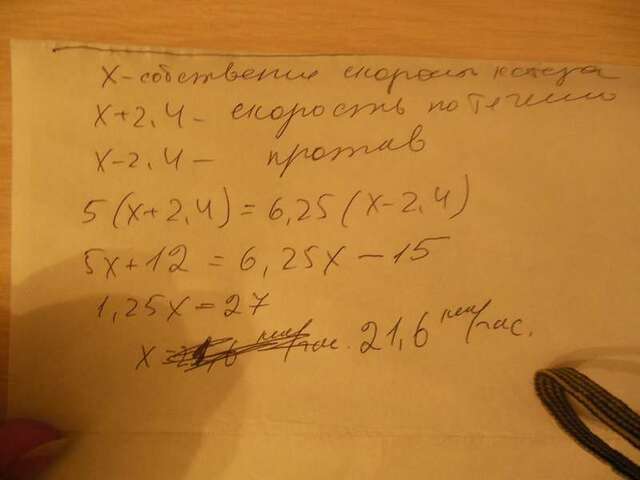 x - собствение скорость катера
x+2,4 - скорость по течению
x-2,4 - против
5(x+2,4)=6,25(x-2,4)
5x+12=6,25x-15
1,25x=27
x 21,6 км/час.